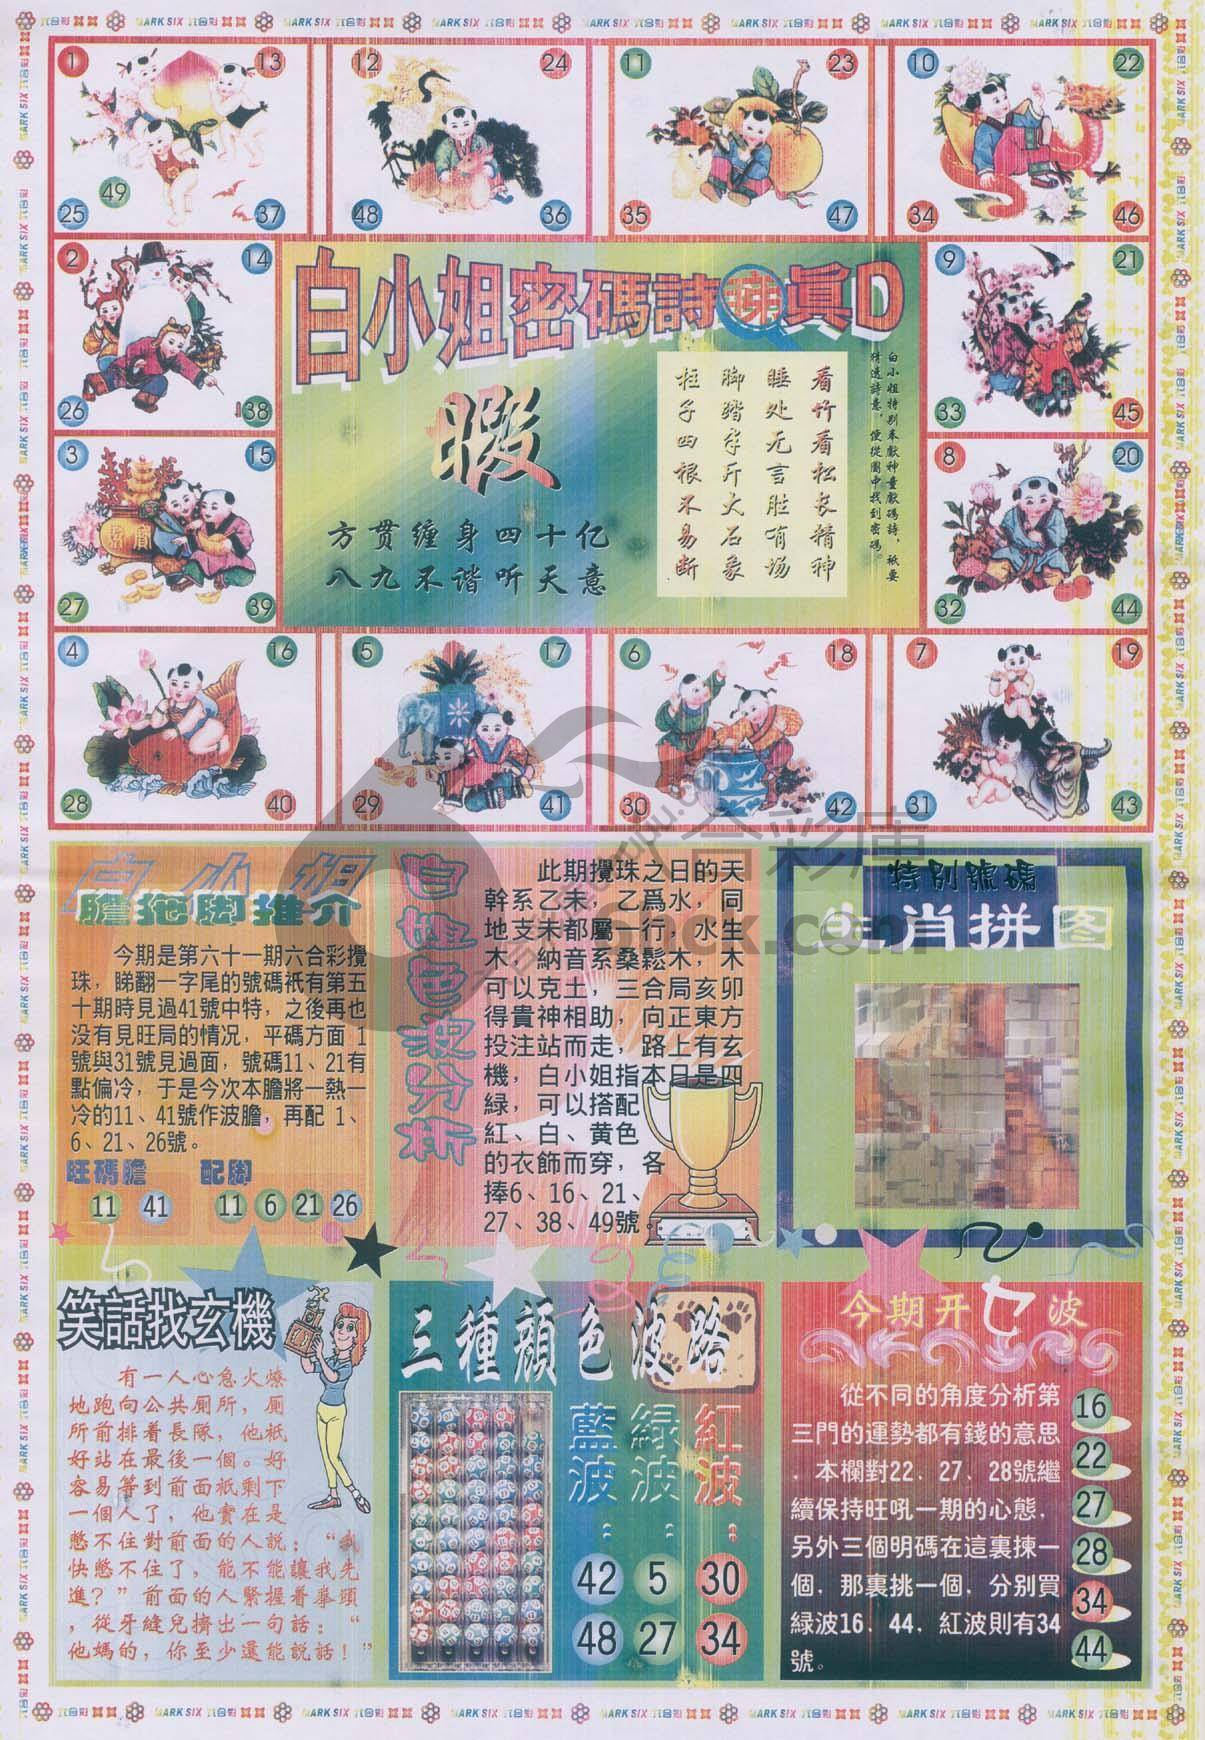 MARK SIX 六合彩
1 13
49
25 37
12 24
48 36
11 23
35 47
10 22
34 46
2 14
26 38
9 21
33 45
3 15
27 39
8 20
32 44
4 16
28 40
5 17
29 41
6 18
30 42
7 19
31 43
白小姐密碼詩
眞D
暇
方贯缠身四十亿
八九不谐听天意
白小姐特别奉獻神童獻碼詩，祇要
猜透詩意，便從圖中找到密碼。
看竹看松长精神
睡处无言胜有场
脚踏半斤大石象
柱子四根不易断
白小姐
膽拖脚推介
今期是第六十一期六合彩攪
珠，睇翻一字尾的號碼祇有第五
十期時見過41號中特，之後再也
没有見旺局的情况，平碼方面 1
號與31號見過面，號碼11、21有
點偏冷，于是今次本膽將一熱一
冷的11、41號作波膽，再配 1、
6、21、26號。
旺碼膽 配脚
11 41 11 6 21 26
白姐色波分析
此期攪珠之日的天
幹系乙未，乙爲水，同
地支未都屬一行，水生
木，納音系桑鬆木，木
可以克土，三合局亥卯
得貴神相助，向正東方
投注站而走，路上有玄
機，白小姐指本日是四
緑，可以搭配
紅、白、黄色
的衣飾而穿，各
捧6、16、21、
27、38、49號。
特别號碼
生肖拼图
六合彩庫
笑話找玄機
有一人心急火燎
地跑向公共厠所，厠
所前排着長隊，他祇
好站在最後一個。好
容易等到前面祇剩下
一個人了，他實在是
憋不住對前面的人説：“我
快憋不住了，能不能讓我先
進？”前面的人緊握着拳頭
，從牙縫兒擠出一句話：“
他媽的，你至少還能説話！”
三種顔色波路
藍波： 緑波： 紅波：
42 5 30
48 27 34
今期开七波
從不同的角度分析第
三門的運勢都有錢的意思
．本欄對22．27．28號繼
續保持旺吼一期的心態，
另外三個明碼在這裏揀一
個，那裏挑一個，分别買
緑波16．44，紅波則有34
號。
16
22
27
28
34
44